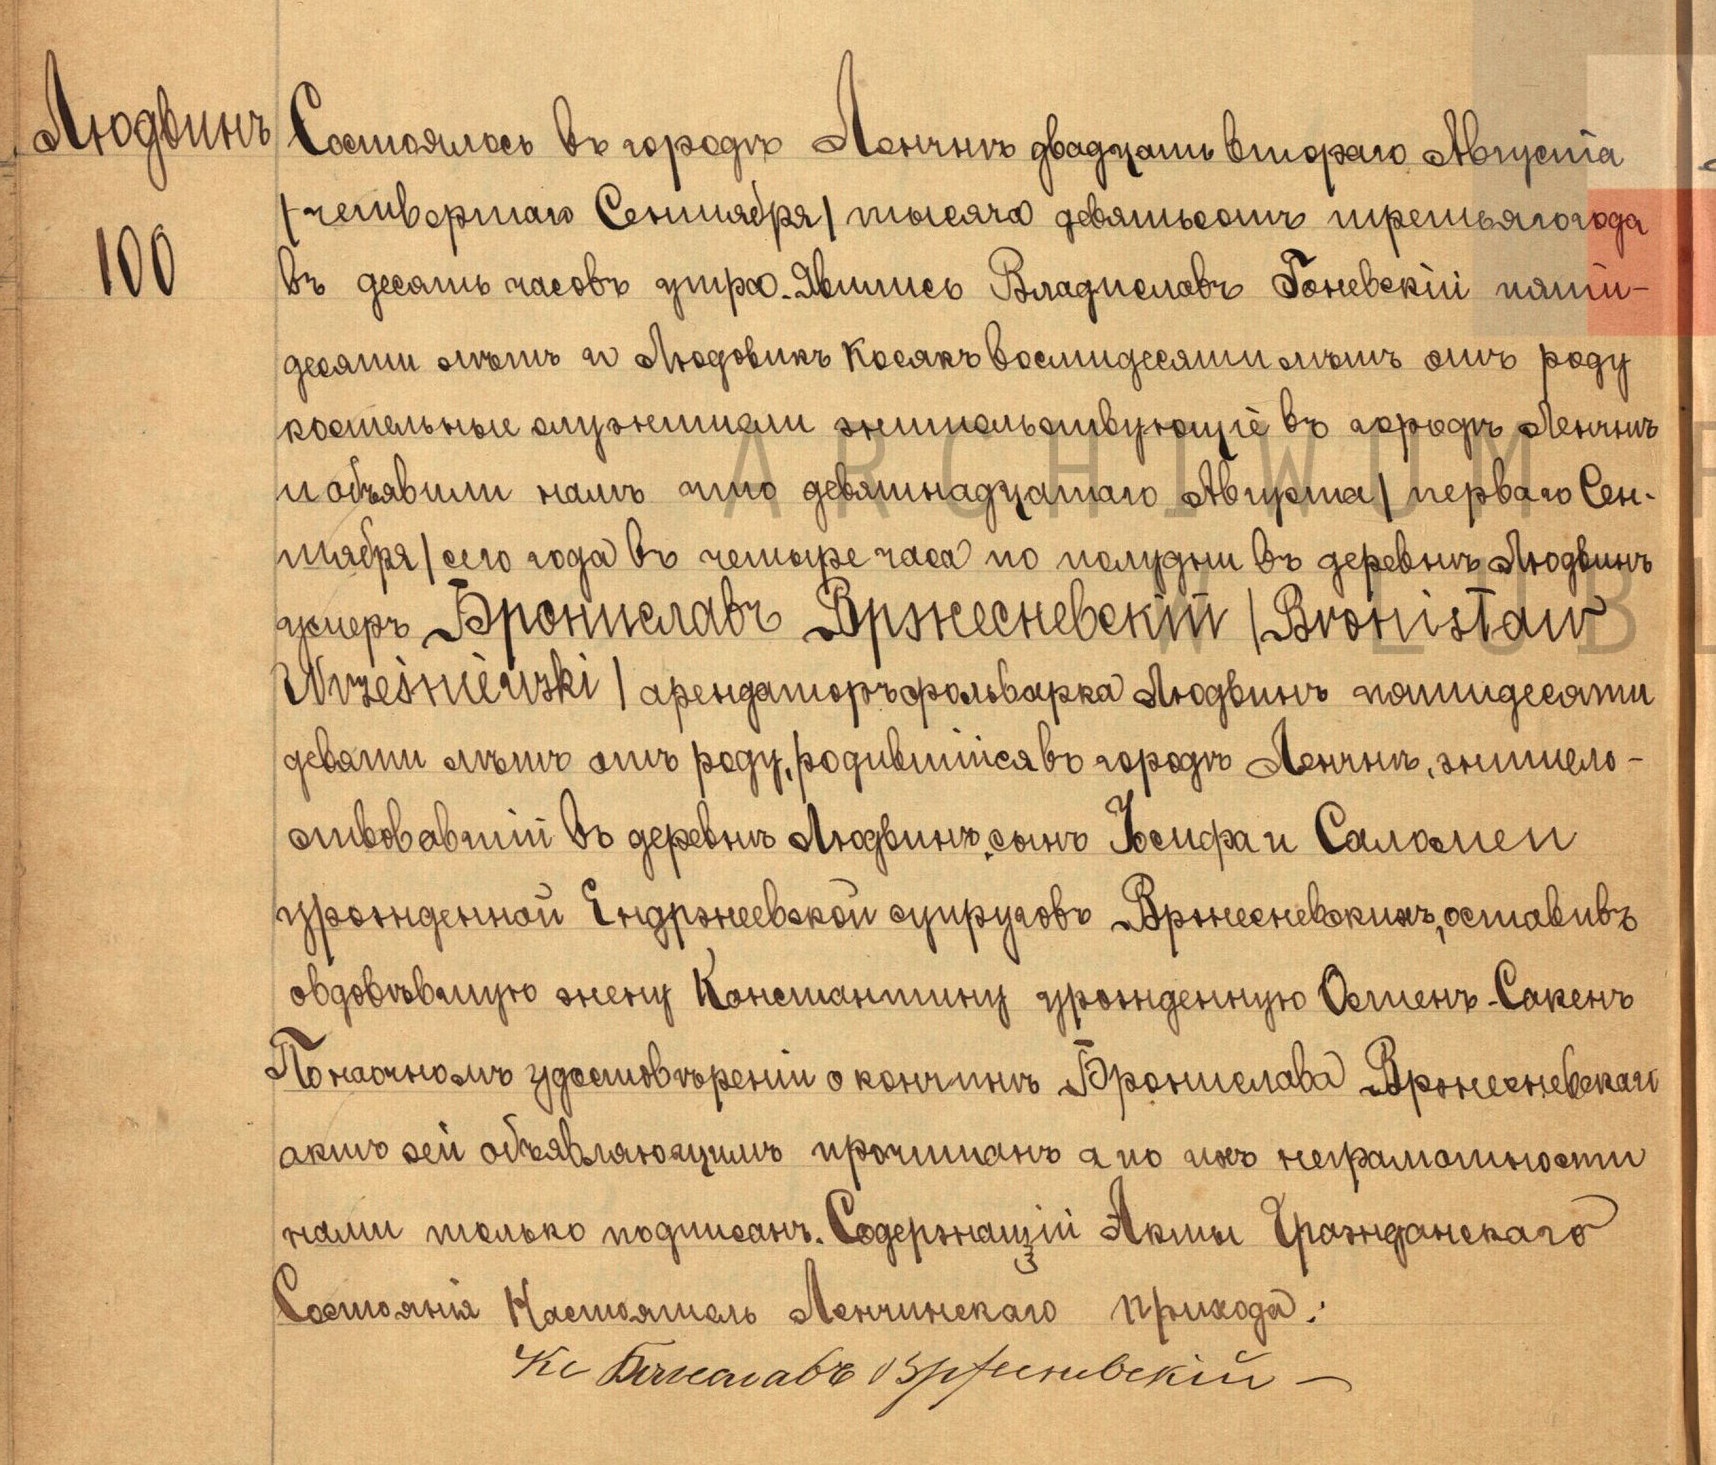 Людвинъ
100
Состоялось въ городѣ Ленчнѣ двадцать втораго Августа
/четвертаго Сентября/ тысяча девятьсотъ третьяго года
въ десять часовъ утра. Явились Владиславъ Гоневскій пяти-
десяти лѣтъ и Людовикъ Косякъ восмидесяти лѣтъ отъ роду
костельные служители жительствующіе въ городѣ Ленчнѣ
и объявили намъ что девятнадцатаго Августа/ перваго Сен-
тября/ сего года въ четыре часа по полудни въ деревнѣ Людвинъ
умеръ Брониславъ Вржесневскій /Bronisław
Wrześniewski/ арендаторъ фольварка Людвинъ пятидесяти
девяти лѣтъ отъ роду, родившійся въ городѣ Ленчнѣ, жительс-
твовавшій въ деревнѣ Людвинъ, сынъ Іосифа и Саломеи
урожденной Ендржеевской супруговъ Вржесневскихъ, оставивъ
овдовѣвшую жену Константину урожденную Остенъ-Сакенъ
По наочномъ удостовѣреніи о кончинѣ Бронислава Вржесневскаго
актъ сей объявляющимъ прочитанъ а по ихъ неграмотности
нами только подписанъ. Содержащій Акты Гражданскаго
Состоянія Настоятель Ленчинскаго прихода:
Кс
ARCHIWUM P
W LUBL